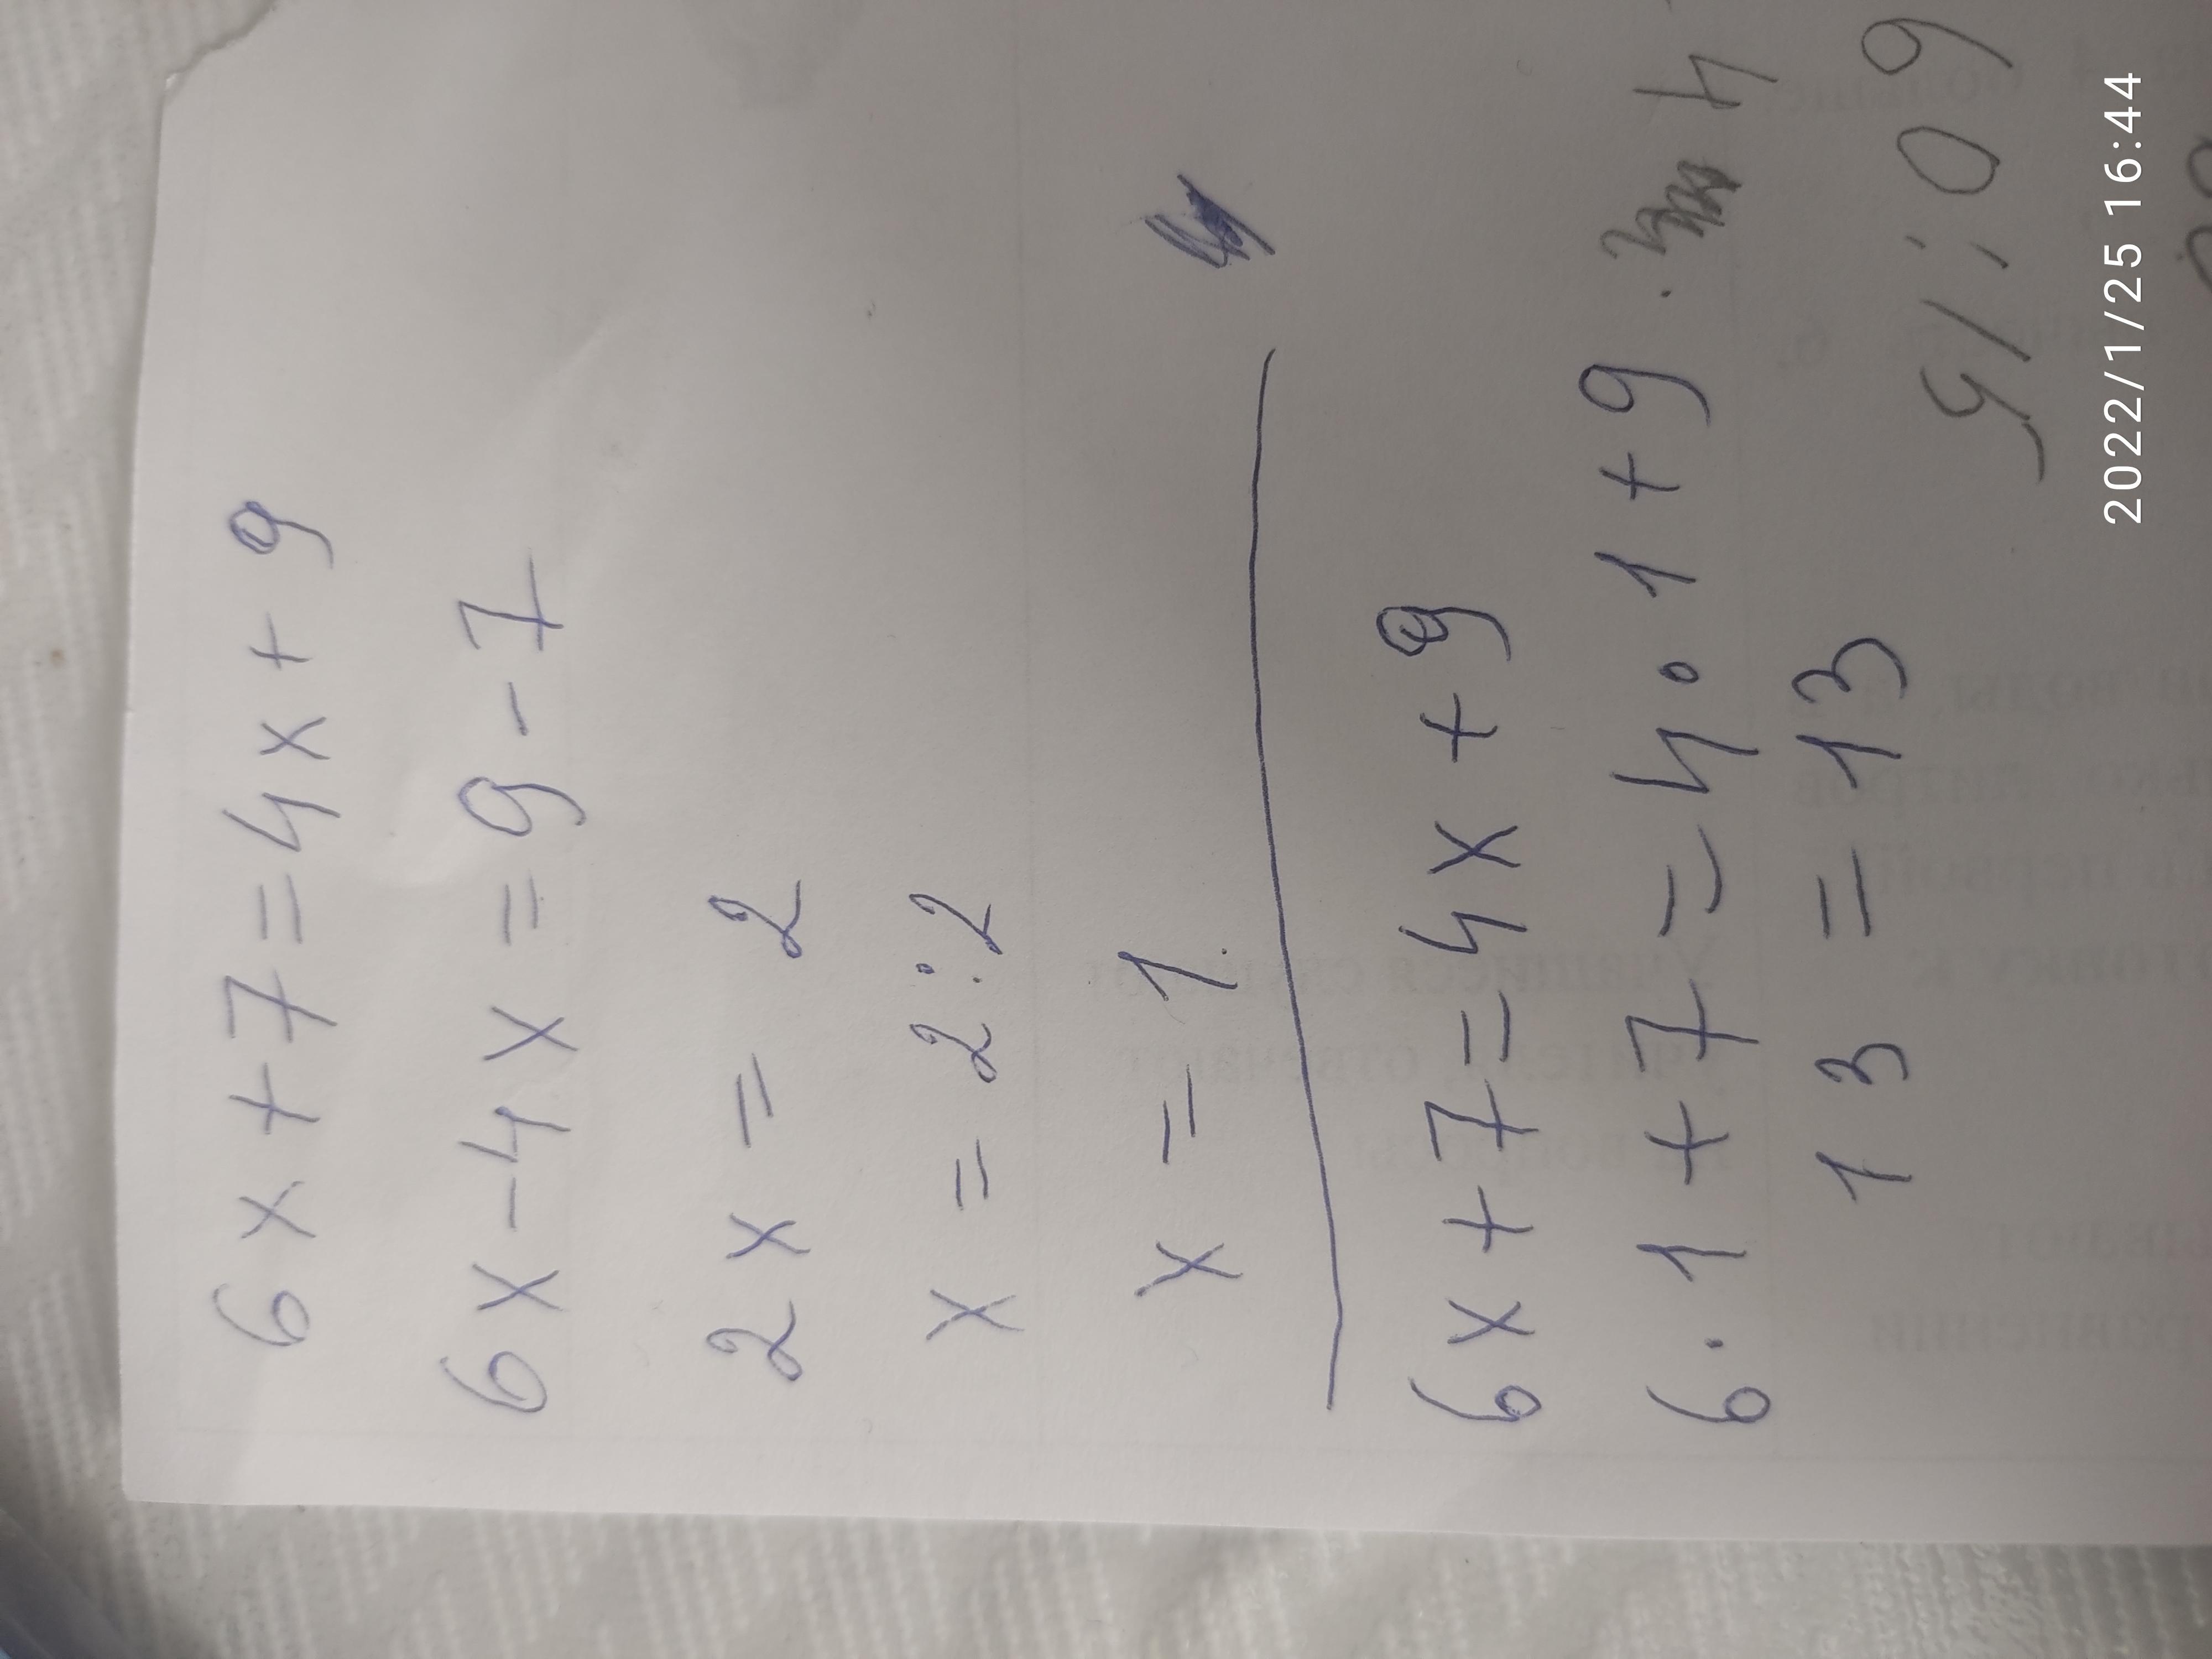 6x+7=4x+9
6x-4x=9-7
2x= 2
x=2:2
x=1.
6x+7=4x+9
6·1+7=4·1+9
13=13
4
2022/1/25 16:44